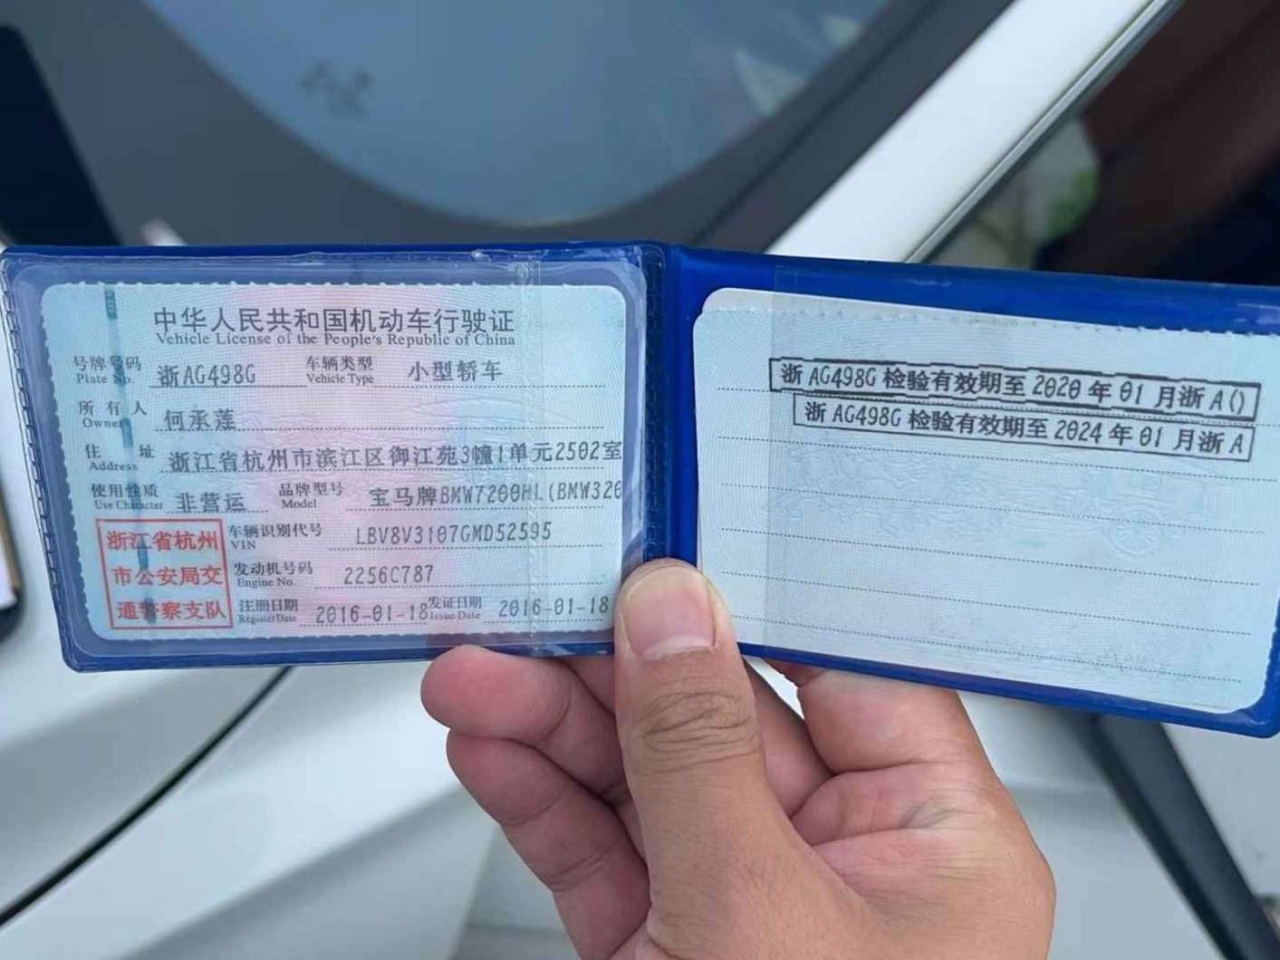 中华人民共和国机动车行驶证
Vehicle License of the People's Republic of China
号牌号码 浙AG498G 车辆类型 小型轿车
Plate No. Vehicle Type
所有人 何承莲
Owner
住址 浙江省杭州市滨江区御江苑3幢1单元2502室
Address
使用性质 非营运 品牌型号 宝马牌BMW7200HL(BMW320
Use Character Model
浙江省杭州
市公安局交
通警察支队
车辆识别代号 LBV8V3107GMD52595
VIN
发动机号码 2256C787
Engine No.
注册日期 2016-01-18 发证日期 2016-01-18
Register Date Issue Date
浙AG498G检验有效期至2020年01月浙A()
浙AG498G检验有效期至2024年01月浙A